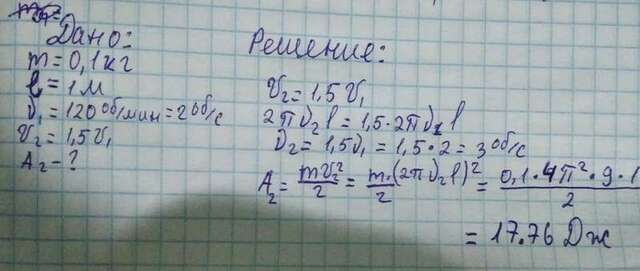 Дано:
m = 0,1 кг
l = 1 м
ν₁ = 120 об/мин = 2 об/с
V₂ = 1,5 V₁
A₂ - ?
Решение:
V₂ = 1,5 V₁
2πν₂l = 1,5·2πν₁l
ν₂ = 1,5ν₁ = 1,5·2 = 3 об/с
A₂ = mV₂²/2 = m·(2πν₂l)²/2 = 0,1·4π²·9·1/2
= 17.76 Дж